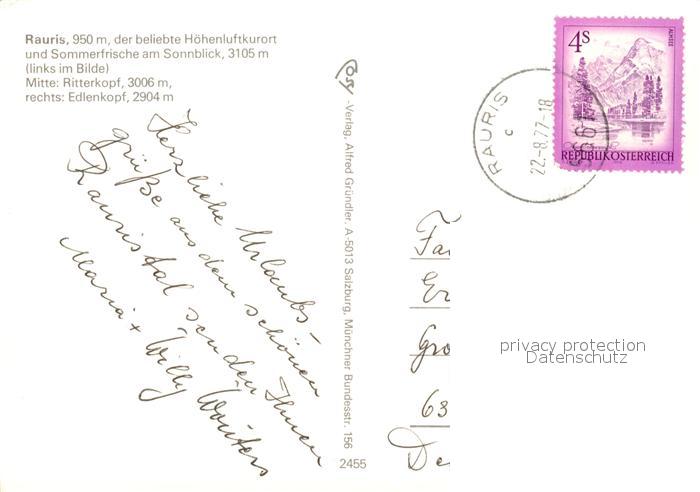 Rauris, 950 m, der beliebte Höhenluftkurort
und Sommerfrische am Sonnblick, 3105 m
(links im Bilde)
Mitte: Ritterkopf, 3006 m,
rechts: Edlenkopf, 2904 m
Herzliche Urlaubs-
grüße aus dem schönen
Rauristal senden Ihnen
Maria + Willy Wouters
Cosy-Verlag, Alfred Gründler, A-5013 Salzburg, Münchner Bundesstr. 156
2455
4S
ALMSEE
REPUBLIK ÖSTERREICH
RAURIS
c
22.-8.77-18
5661
Fa
Er
Gro
63
De
privacy protection
Datenschutz